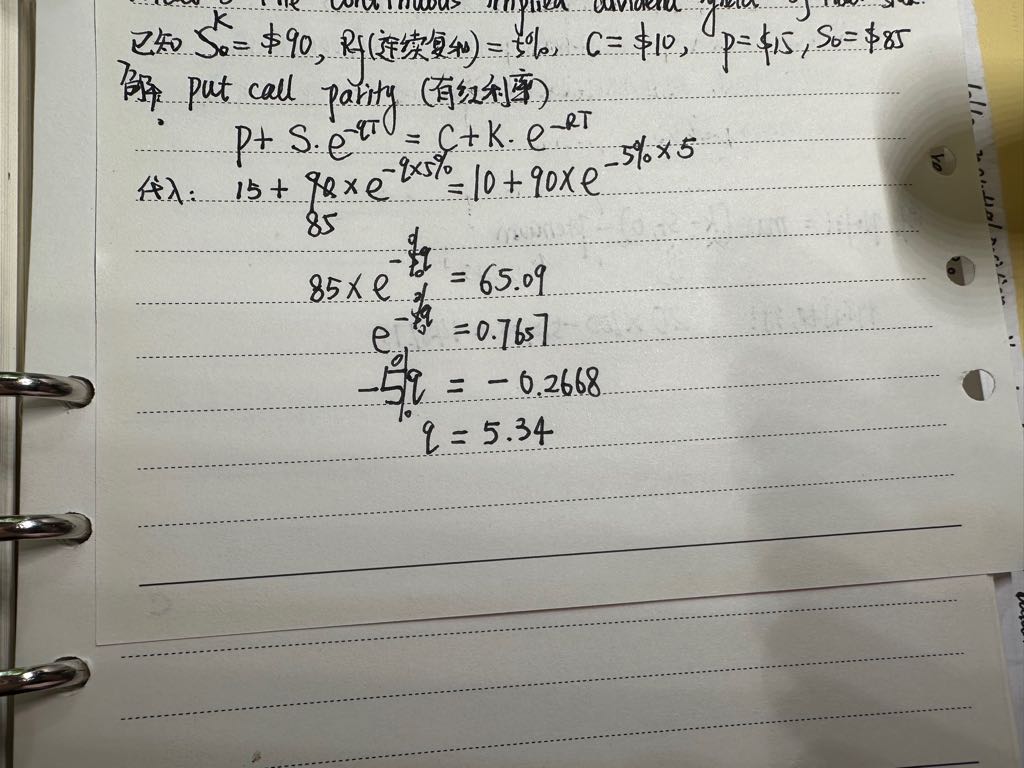 the continuous implied dividend yield of
已知 K S₀ = $90, Rf(连续复利) = 5%, C = $10, P = $15, S₀ = $85
解: put call parity (有红利率)
P + S·e^-qT = C + K·e^-RT
代入: 15 + 90 × e^-q×5% = 10 + 90 × e^-5%×5
85
85 × e^-5%q = 65.09
e^-5%q = 0.7657
-5%q = -0.2668
q = 5.34